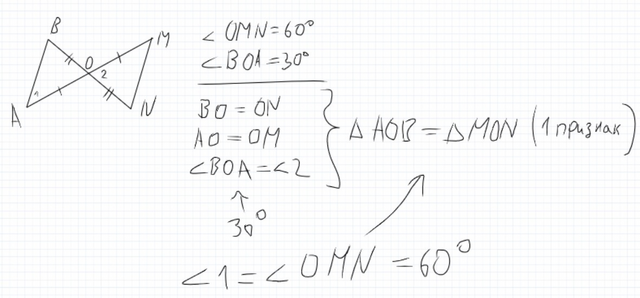 B
M
O
2
1
A
N
∠ OMN = 60°
∠ BOA = 30°
BO = ON
AO = OM
∠BOA = ∠2
△ AOB = △ MON (1 признак)
30°
∠1 = ∠ OMN = 60°